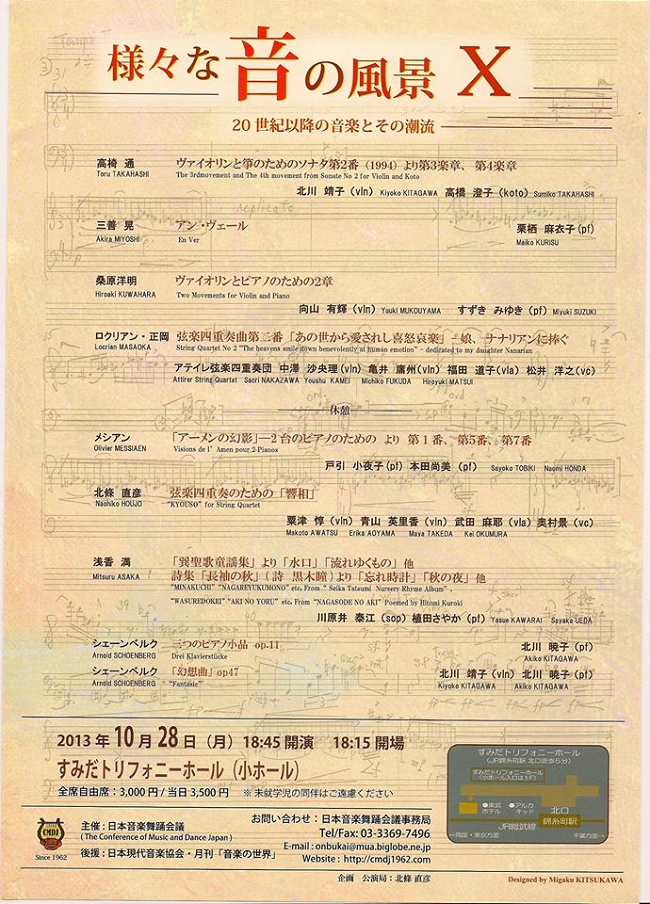 様々な音の風景 X
20世紀以降の音楽とその潮流
高椅 通 ヴァイオリンと箏のためのソナタ第2番(1994)より第3楽章、第4楽章
Toru TAKAHASHI The 3rdmovement and The 4th movement from Sonate No 2 for Violin and Koto
北川 靖子(vln) Kiyoko KITAGAWA 高橋 澄子(koto) Sumiko TAKAHASHI
三善 晃 アン・ヴェール 栗栖 麻衣子(pf)
Akira MIYOSHI En Ver Maiko KURISU
桑原洋明 ヴァイオリンとピアノのための2章
Hiroaki KUWAHARA Two Movements for Violin and Piano
向山 有輝(vln) Yuuki MUKOUYAMA すずき みゆき(pf) Miyuki SUZUKI
ロクリアン・正岡 弦楽四重奏曲第二番「あの世から愛されし喜怒哀楽」−娘、ナナリアンに捧ぐ
Locrian MASAOKA String Quartet No 2 "The heavens smile down benevolently at human emotion" - dedicated to my daughter Nanarian
アテイレ弦楽四重奏団 中澤 沙央理(vln) 亀井 庸州(vln) 福田 道子(vla) 松井 洋之(vc)
Attirer String Quartet Saori NAKAZAWA Youshu KAMEI Michiko FUKUDA Hiroyuki MATSUI
休憩
メシアン 「アーメンの幻影」―2台のピアノのための より 第1番、第5番、第7番
Olivier MESSIAEN Visions de l' Amen pour 2-Pianos
戸引 小夜子(pf) 本田尚美 (pf) Sayoko TOBIKI Naomi HONDA
北條 直彦 弦楽四重奏のための「響相」
Naohiko HOUJO "KYOUSO" for String Quartet
粟津 惇(vln) 青山 英里香(vln) 武田 麻耶(vla) 奥村景(vc)
Makoto AWATSU Erika AOYAMA Maya TAKEDA Kei OKUMURA
浅香 満 「巽聖歌童謡集」より「水口」「流れゆくもの」他
Mitsuru ASAKA 詩集「長袖の秋」(詩 黒木瞳)より「忘れ時計」「秋の夜」他
"MINAKUCHI" "NAGAREYUKUMONO" etc. From " Seika Tatsumi Nursery Rhyme Album" .
"WASUREDOKEI" "AKI NO YORU" etc. From "NAGASODE NO AKI" Poemed by Hitomi Kuroki
川原井 泰江(sop) 植田さやか(pf) Yasue KAWARAI Sayaka UEDA
シェーンベルク 三つのピアノ小品 op.11 北川 暁子(pf)
Arnold SCHOENBERG Drei Klavierstücke Akiko KITAGAWA
シェーンベルク 「幻想曲」op47 北川 靖子(vln) 北川 暁子(pf)
Arnold SCHOENBERG "Fantasie" Kiyoko KITAGAWA Akiko KITAGAWA
2013年10月28日(月) 18:45開演 18:15開場
すみだトリフォニーホール(小ホール)
全席自由席:3,000円/当日3,500円 ※未就学児の同伴はご遠慮ください
すみだトリフォニーホール
(JR錦糸町駅 北口徒歩5分)
すみだトリフォニーホール
(小ホール入口は1F)
●東武ホテル ●アルカキッド 北口
錦糸町駅
JR総武線
←両国・東京方面 千葉方面→
CMDJ
Since 1962
主催:日本音楽舞踊会議
( The Conference of Music and Dance Japan )
後援:日本現代音楽協会・月刊「音楽の世界」
お問い合わせ:日本音楽舞踊会議事務局
Tel/Fax: 03-3369-7496
E-mail : onbukai@mua.biglobe.ne.jp
Website : http://cmdj1962.com
企画 公演局:北條 直彦
Designed by Migaku KITSUKAWA